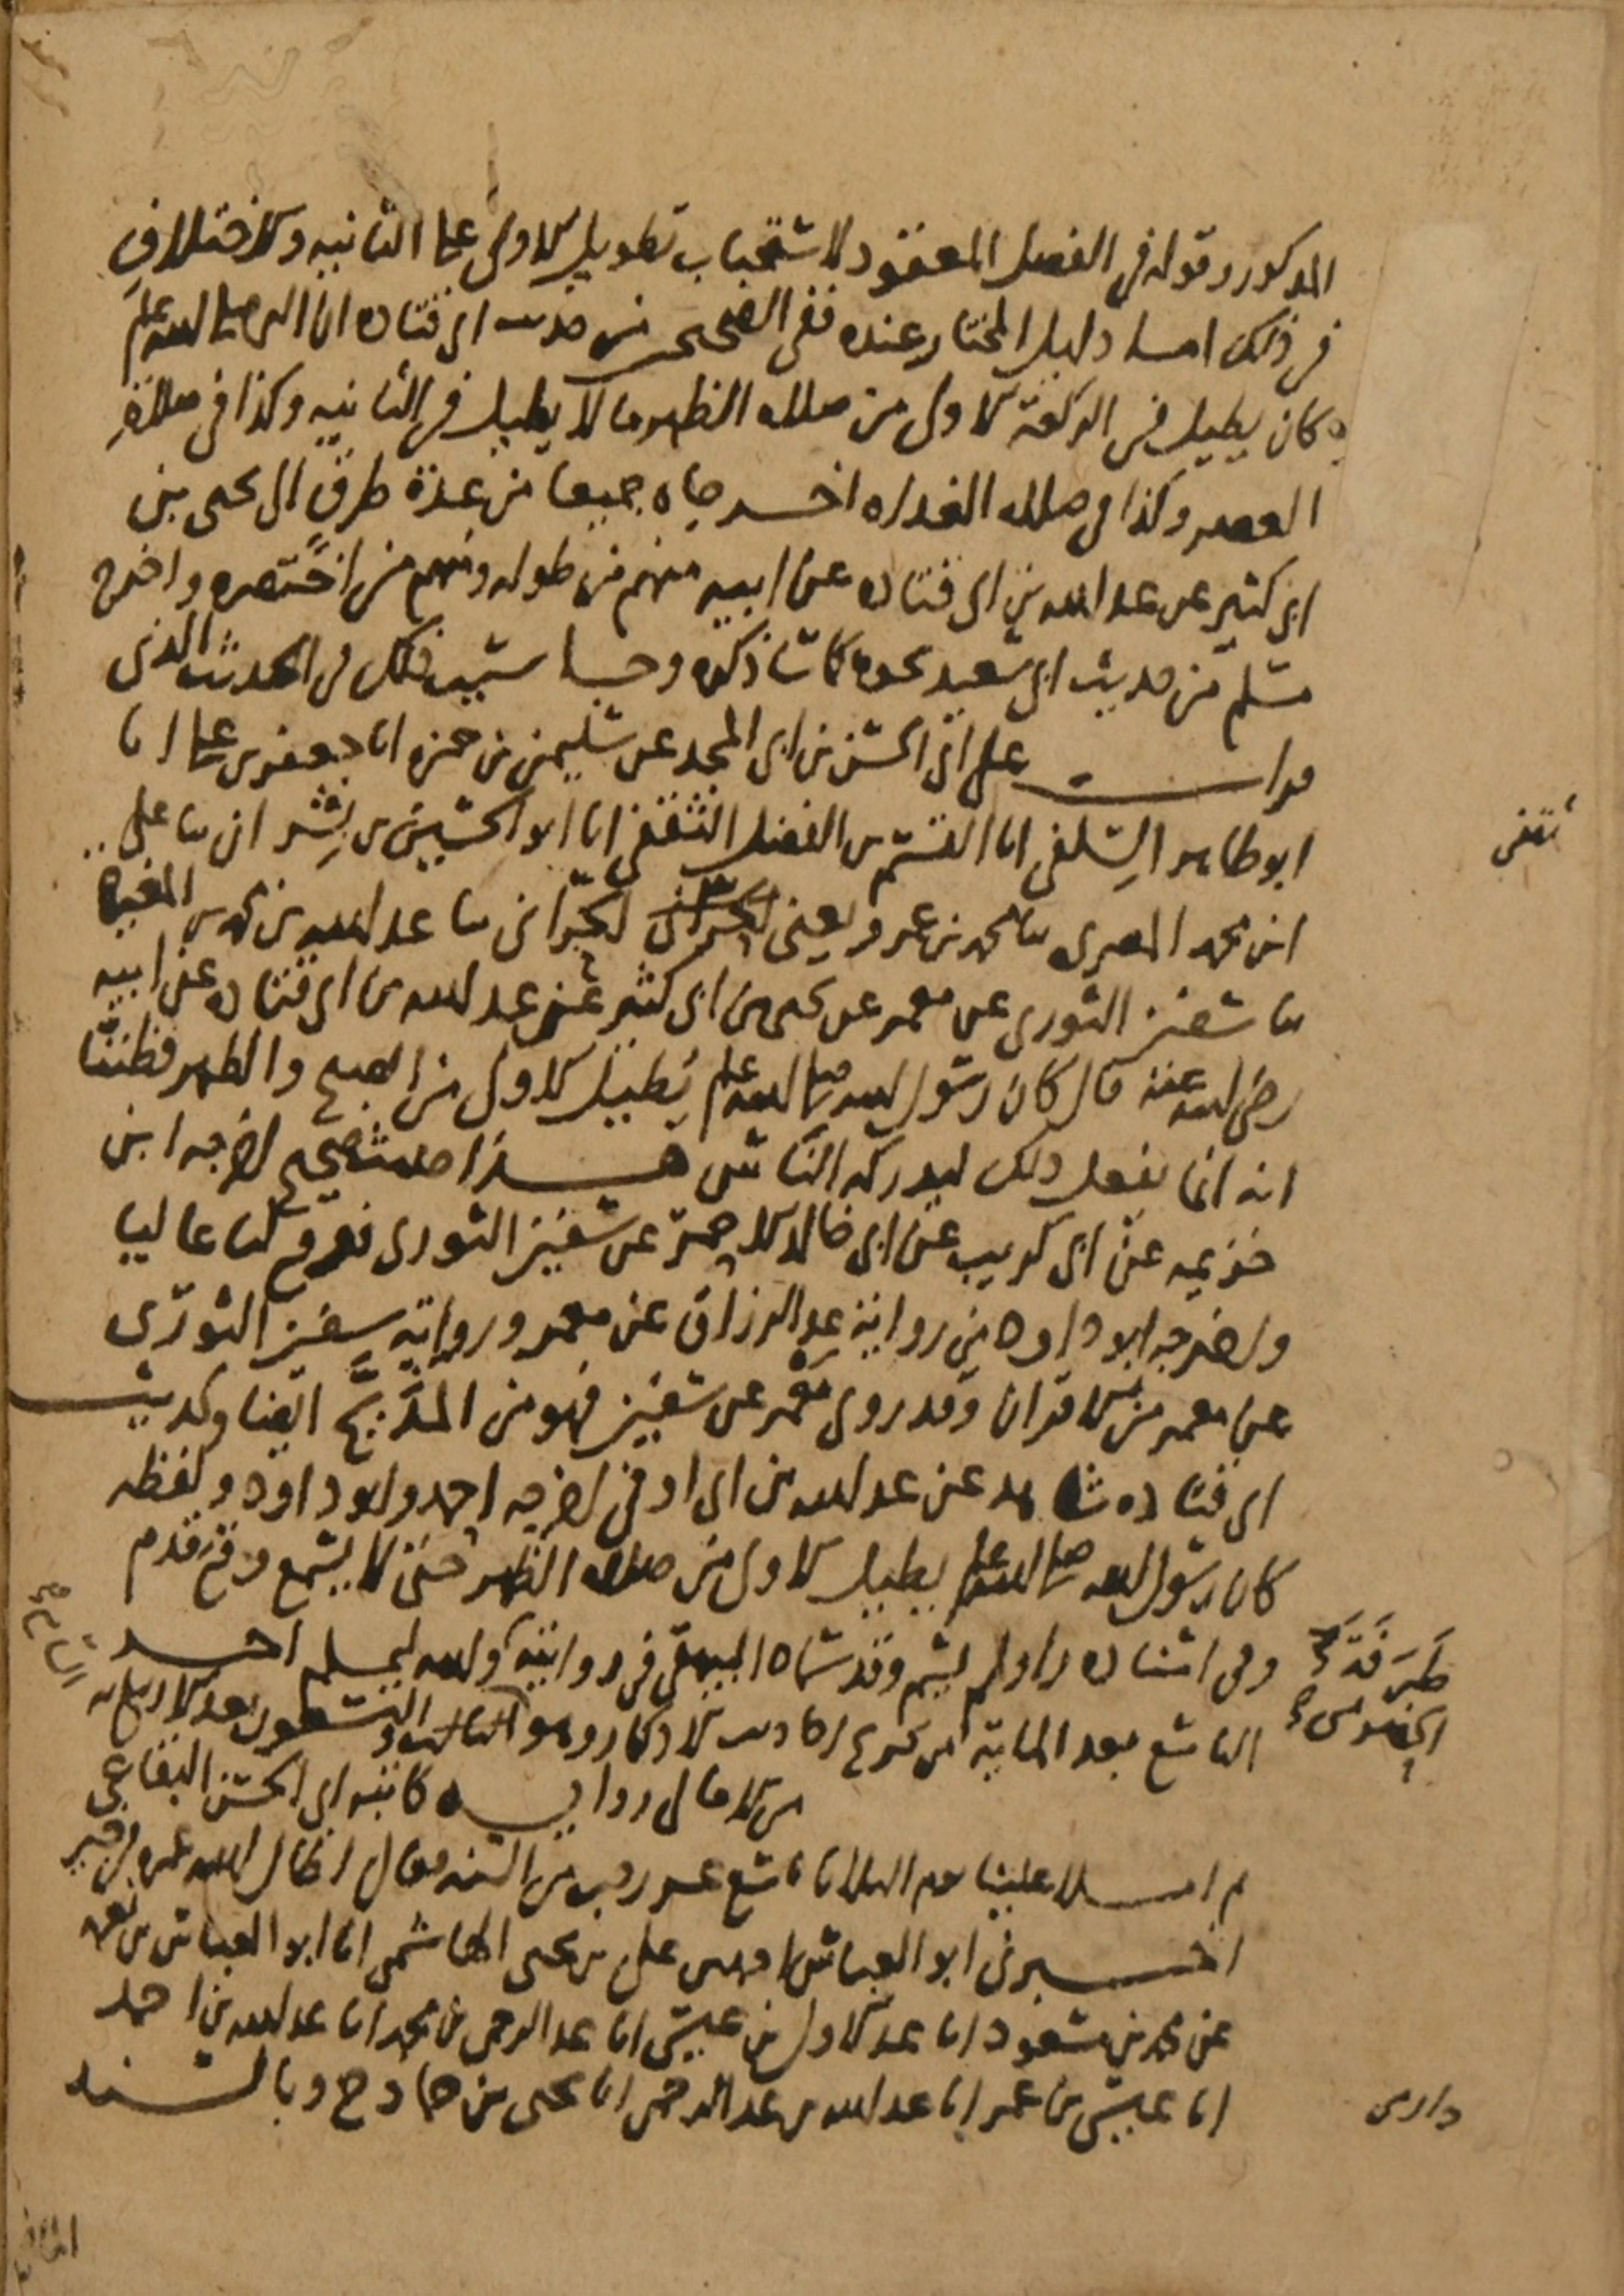 المذكور وقوله في الفصل المعقود لاستحباب تطويل الاولى على الثانيه والاختلاف
في ذلك اما دليل المختار عنده ففي الصحيحين من حديث ابي قتاده ان النبي صلى الله عليه
وسلم كان يطيل في الركعة الاولى من صلاه الظهر ما لا يطيل في الثانيه وكذا في صلاة
العصر وكذا في صلاه الغداه اخرجاه جميعا من عدة طرق الى يحيى بن
ابي كثير عن عبد الله بن ابي قتاده عن ابيه منهم من طوله ومنهم من اختصره واخرج
مسلم من حديث ابي سعيد نحوه كما سا ذكره وجا سبب ذلك في الحديث الذي
قرات على ابي الحسن بن ابي المجد عن سليمن بن حمزه انا جعفر بن علي انا
ابو طاهر السلفي انا القسم بن الفضل الثقفي انا ابو الحسين بن بشران ثنا علي
ثقفي
ابن محمد المصري ثنا محمد بن عمرو يعني الحراني ثنا عبد الله بن محمد بن المغيره
ثنا سفين الثوري عن معمر عن يحيى بن ابي كثير عن عبد الله بن ابي قتاده عن ابيه
رضي الله عنه قال كان رسول الله صلى الله عليه وسلم يطيل الاولى من الصبح والظهر فظننا
انه انما يفعل ذلك ليدركه الناس هذا حديث صحيح اخرجه ابن
خزيمه عن ابي كريب عن ابي خالد الاحمر عن سفين الثوري فوقع لنا عاليا
واخرجه ابو داود من رواية عبد الرزاق عن معمر ورواية سفين الثوري
عن معمر من الاقران وقد روى معمر عن سفين فهو من المدبج ايضا ولحديث
ابي قتاده شاهد عن عبد الله بن ابي اوفى اخرجه احمد وابو داود ولفظه
كان رسول الله صلى الله عليه وسلم يطيل الاولى من صلاه الظهر حتى لا يسمع وقع قدم
وفي اسناده راو لم يسم وقد سماه البيهقي في روايته والله اعلم احمد
طرفة
الحضرمي
التاسع بعد المايه من تخريج احاديث الاذكار وهو التسعون بعد الاربعمايه
من الامالي روايه كاتبه ابي الحسن البقاعي
ثم املا علينا يوم الثلاثا تاسع عشر رجب من السنه فقال اطال الله عمره في خير
اخبرني ابو العباس علي بن يحيى الهاشمي انا ابو العباس بن نعمه
عن محمد بن مسعود انا عبد الاول بن عيسى انا عبد الرحمن بن محمد انا عبد الله بن احمد
انا عيسى بن عمر انا عبد الله بن عبد الرحمن انا يحيى بن حماد ح وبالسند
دارمي